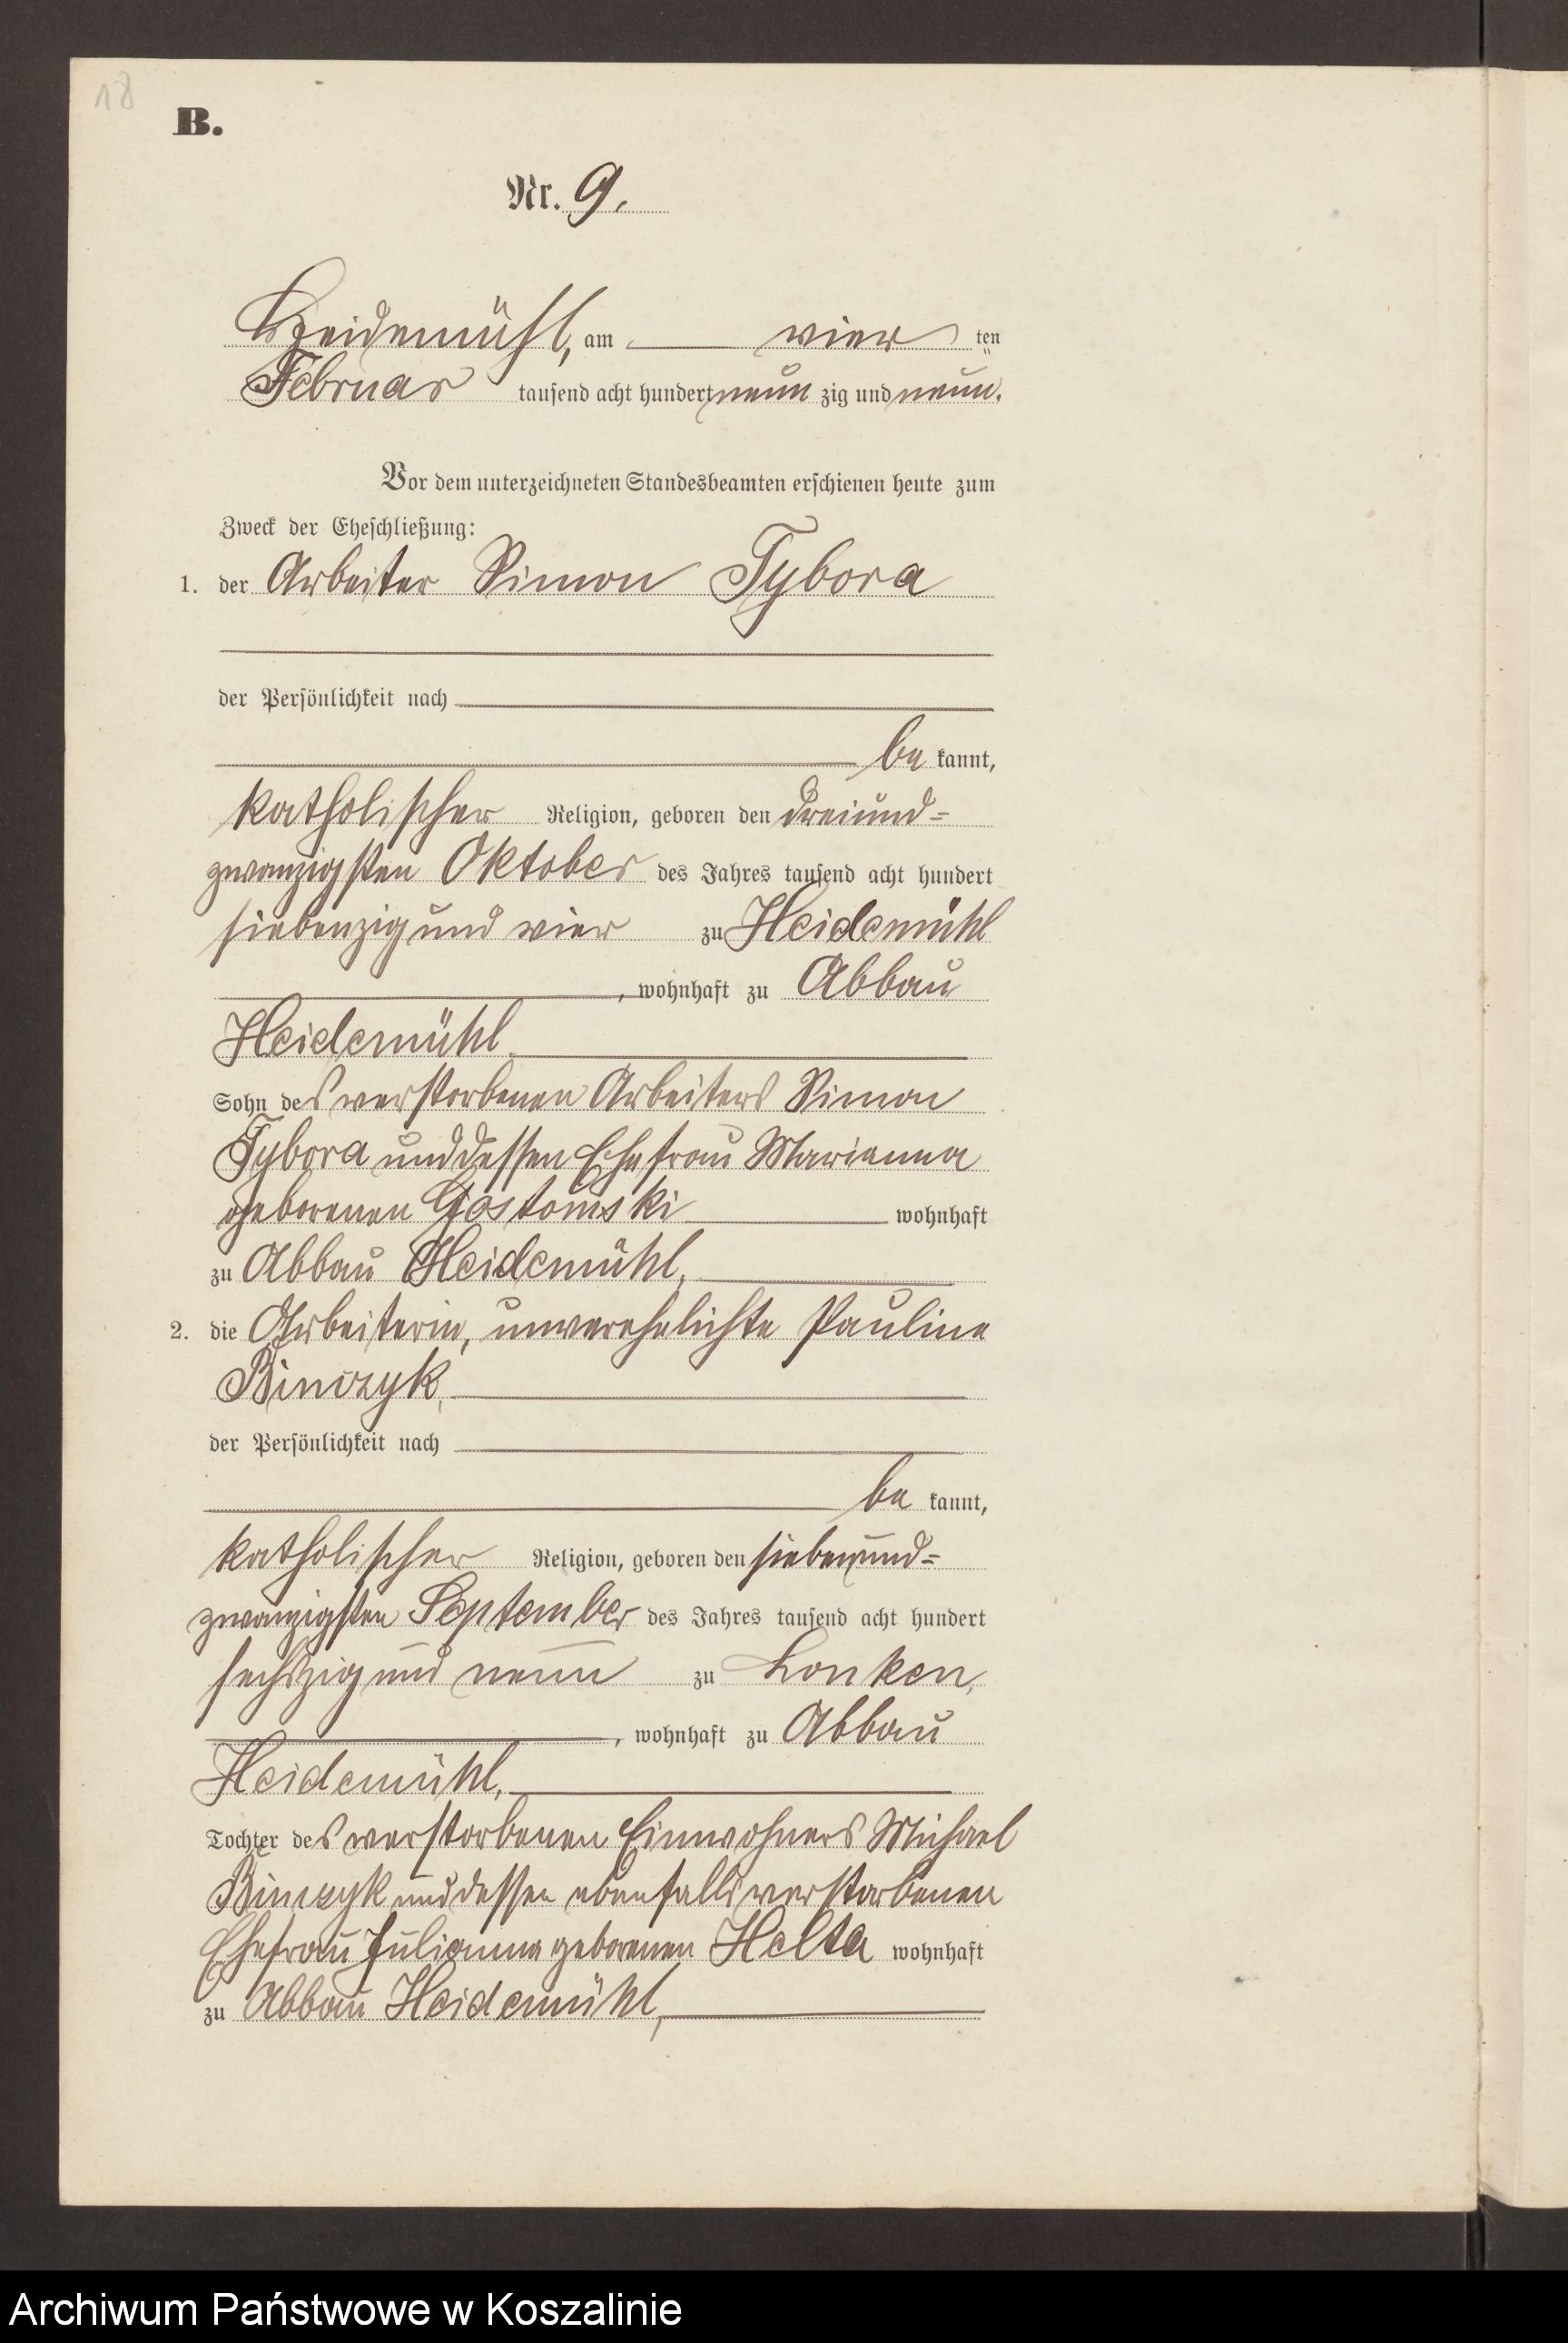 18
B.
Nr. 9.
Heidemühl, am vier ten
Februar tausend acht hundert neun zig und neun.
Vor dem unterzeichneten Standesbeamten erschienen heute zum
Zweck der Eheschließung:
1. der Arbeiter Simon Tybora
der Persönlichkeit nach
be kannt,
katholischer Religion, geboren den dreiund=
zwanzigsten Oktober des Jahres tausend acht hundert
siebenzig und vier zu Heidemühl
, wohnhaft zu Abbau
Heidemühl,
Sohn des verstorbenen Arbeiters Simon
Tybora und dessen Ehefrau Marianna
geborenen Gostomski wohnhaft
zu Abbau Heidemühl,
2. die Arbeiterin, unverehelichte Pauline
Binczyk,
der Persönlichkeit nach
be kannt,
katholischer Religion, geboren den siebenund=
zwanzigsten September des Jahres tausend acht hundert
sechszig und neun zu Lonken,
, wohnhaft zu Abbau
Heidemühl,
Tochter des verstorbenen Einwohners Michael
Binczyk und dessen ebenfalls verstorbenen
Ehefrau Julianna geborenen Helta wohnhaft
zu Abbau Heidemühl,
Archiwum Państwowe w Koszalinie